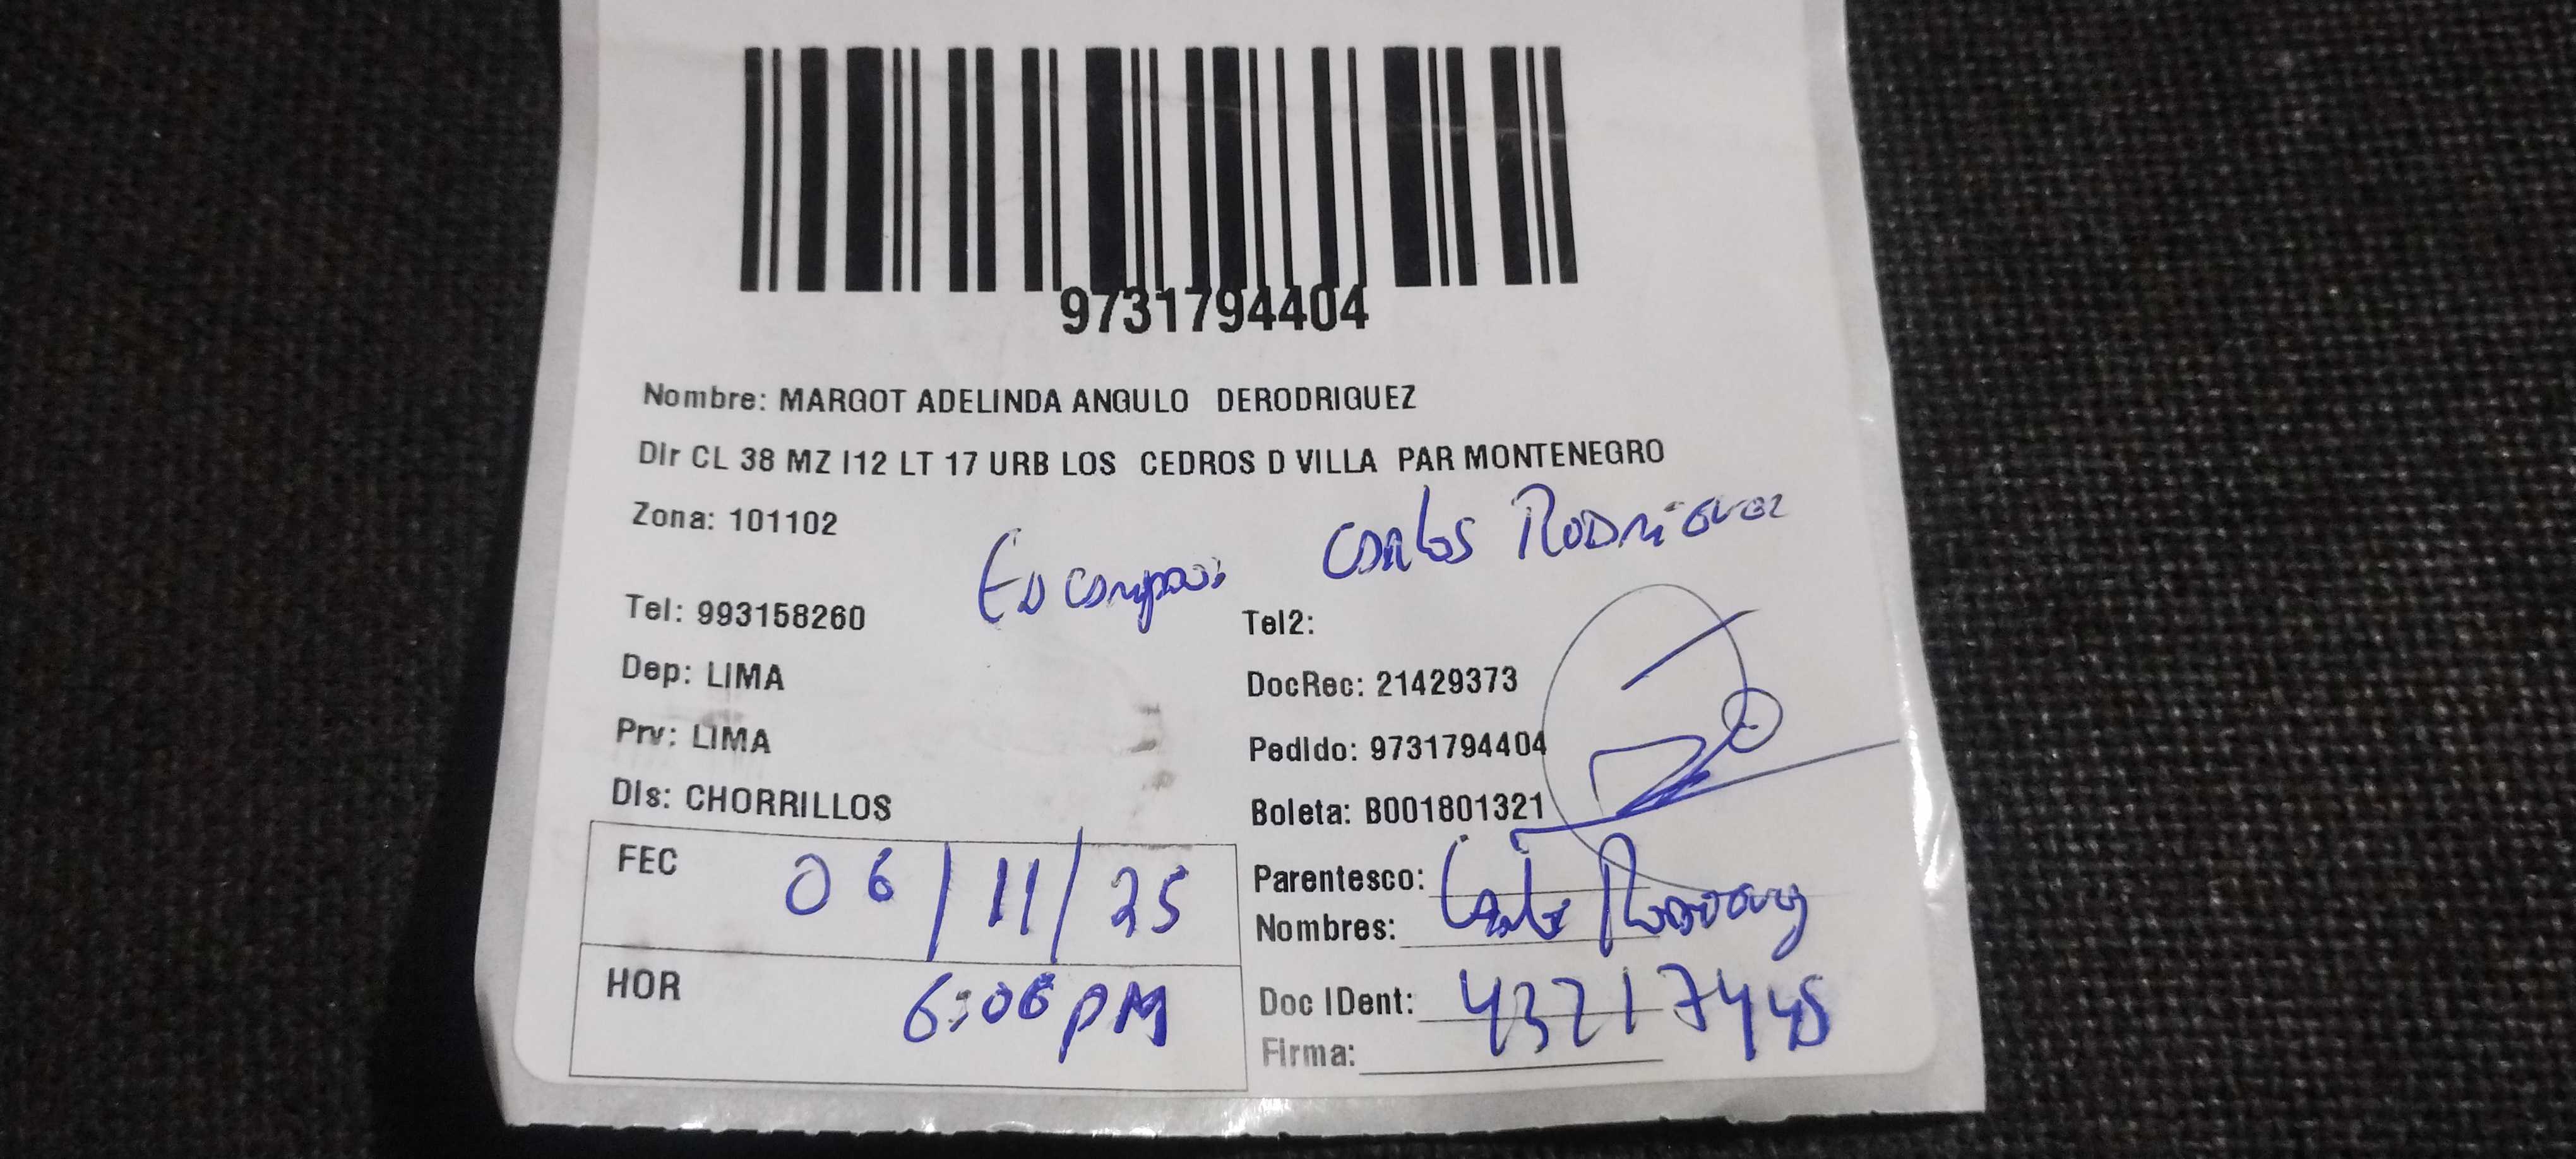 9731794404
Nombre: MARGOT ADELINDA ANGULO DERODRIGUEZ
Dir CL 38 MZ I12 LT 17 URB LOS CEDROS D VILLA PAR MONTENEGRO
Zona: 101102
Carlos Rodriguez
Tel: 993158260
Tel2:
Dep: LIMA
DocRec: 21429373
Prv: LIMA
Pedido: 9731794404
Dis: CHORRILLOS
Boleta: B001801321
FEC 06/11/25
Parentesco:
Nombres: Carlos Rodriguez
HOR 6:06 PM
Doc IDent:
Firma: